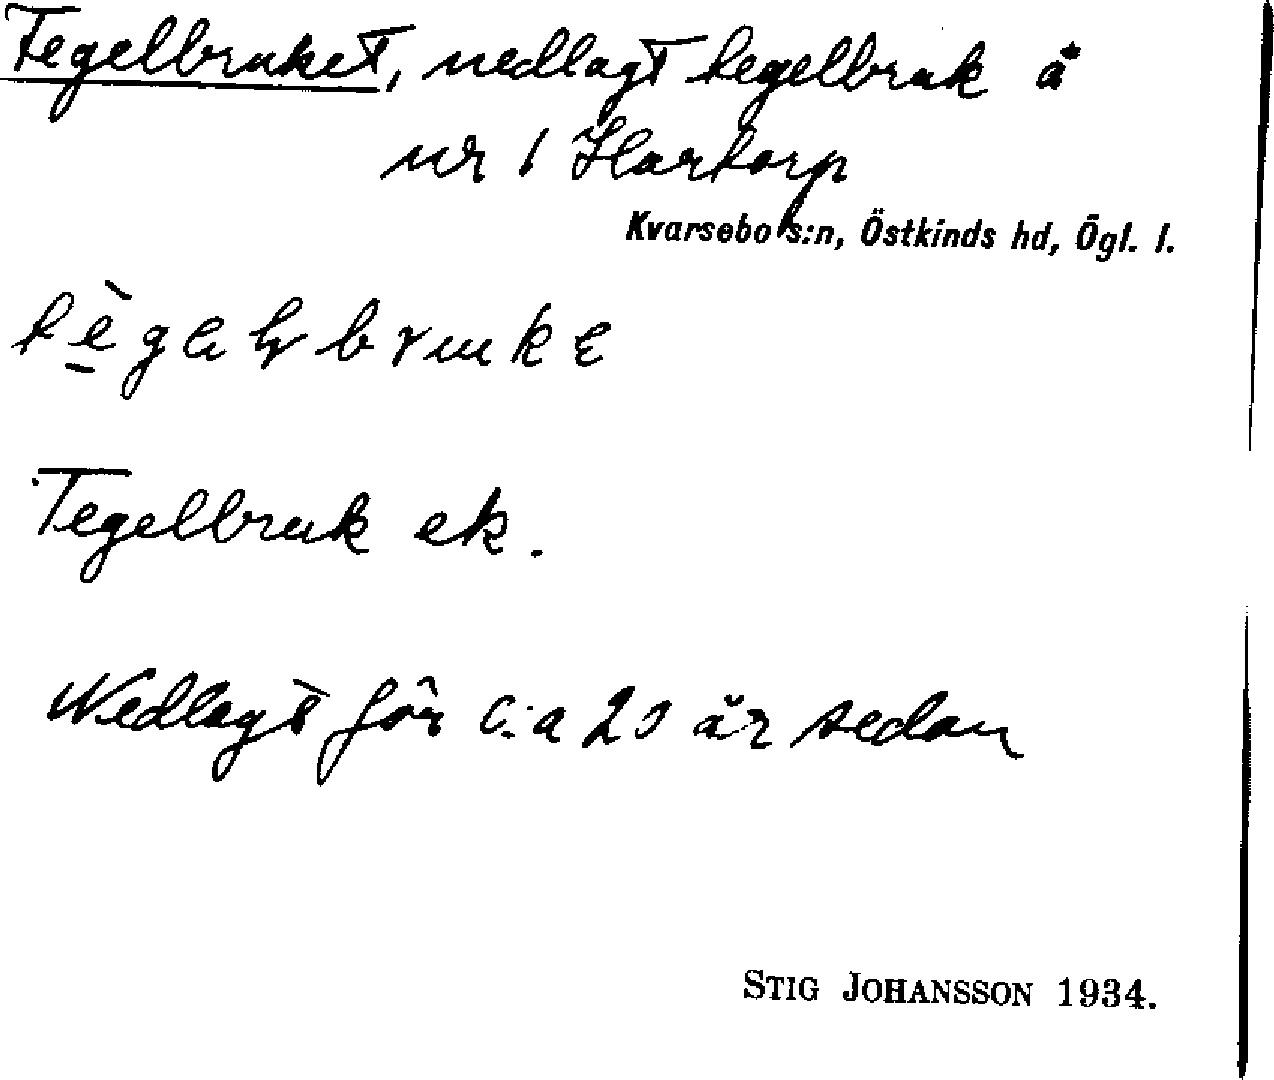 Tegelbruket, nedlagt tegelbruk å
nr 1 Hartorp
Kvarsebo s:n, Östkinds hd, Ögl. l.
Tegelbruk ek.
Nedlagt för c:a 20 år sedan
STIG JOHANSSON 1934.